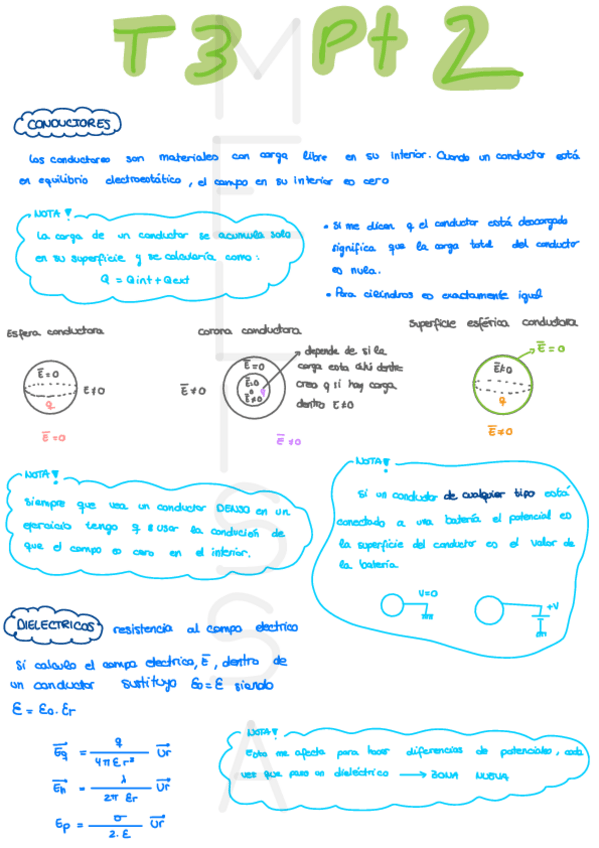 T3 Pt 2
CONDUCTORES
Los conductores son materiales con carga libre en su interior. Cuando un conductor está
en equilibrio electroestático, el campo en su interior es cero
NOTA!
La carga de un conductor se acumula solo
en su superficie y se calcularía como:
Q = Qint + Qext
• Si me dicen q el conductor está descargado
significa que la carga total del conductor
es nula.
• Para cilindros es exactamente igual
Esfera conductora
E̅ = 0
E ≠ 0
q
E̅ = 0
corona conductora
E̅ ≠ 0
E̅ = 0
E̅ ≠ 0
depende de si la
carga esta ahí dentro
creo q si hay carga
dentro E ≠ 0
E̅ ≠ 0
superficie esférica conductora
E̅ = 0
E̅ ≠ 0
q
E̅ ≠ 0
NOTA!
siempre que vea un conductor DENSO en un
ejercicio tengo q usar la condición de
que el campo es cero en el interior.
NOTA!
Si un conductor de cualquier tipo está
conectado a una batería el potencial es
la superficie del conductor es el valor de
la batería
V=0
+V
DIELECTRICOS resistencia al campo electrico
Si calculo el campo electrico, E̅, dentro de
un conductor sustituyo ε0 = ε siendo
ε = ε0 · εr
Eq = q / 4πεr² Ur
Eh = λ / 2π εr Ur
Ep = σ / 2·ε Ur
NOTA!
Esto me afecta para hacer diferencias de potenciales, cada
vez que paso un dieléctrico → ZONA NUEVA
MELISSA